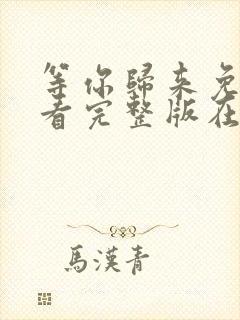 等你歸來免
看完整版在
馬漢青